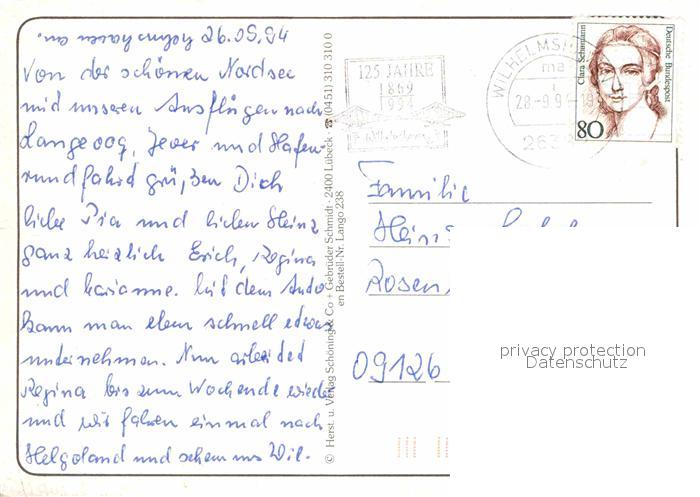 26.09.94
Von der schönen Nordsee
und unseren Ausflügen nach
Langeoog, Jever und Hafen-
rundfahrt grüßen Dich
liebe Pia und lieben Heinz
ganz herzlich Erich, Regina
und Marianne. Mit dem Auto
kann man eben schnell etwas
unternehmen. Nun arbeitet
Regina bis zum Wochende wieder
und wir fahren einmal nach
Helgoland und sehen uns Wil-
helmshaven an.
© Herst. u. Verlag Schöning & Co + Gebrüder Schmidt · 2400 Lübeck · ☎ (0451) 310 310 0
en Bestell-Nr. Lango 238
125 JAHRE
1869
1994
Wilhelmshaven
WILHELMSH
ma
28.-9.94-19
263
Clara Schumann
Deutsche Bundespost
80
Familie
Rosen
09126
privacy protection
Datenschutz